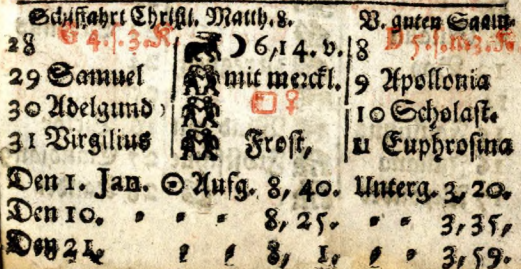 Schiffahrt Christi. Matth. 8. V. guten Saam-
28 G 4. s. 3. K. ☽ 6, 14. v. 8 D 5. s. m. 3. K.
29 Samuel mit merckl. 9 Apollonia
30 Adelgund □ ♀ 10 Scholast.
31 Virgilius Frost, 11 Euphrosina
Den 1. Jan. ☉ Aufg. 8, 40. Unterg. 3, 20.
Den 10. 8, 25. 3, 35,
Den 21. 8, 1. 3, 59.